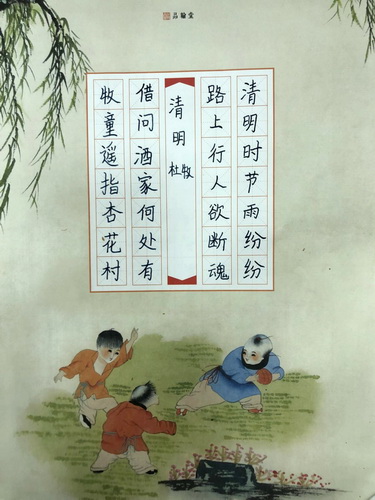 品翰堂
清明时节雨纷纷
路上行人欲断魂
清明
杜牧
借问酒家何处有
牧童遥指杏花村